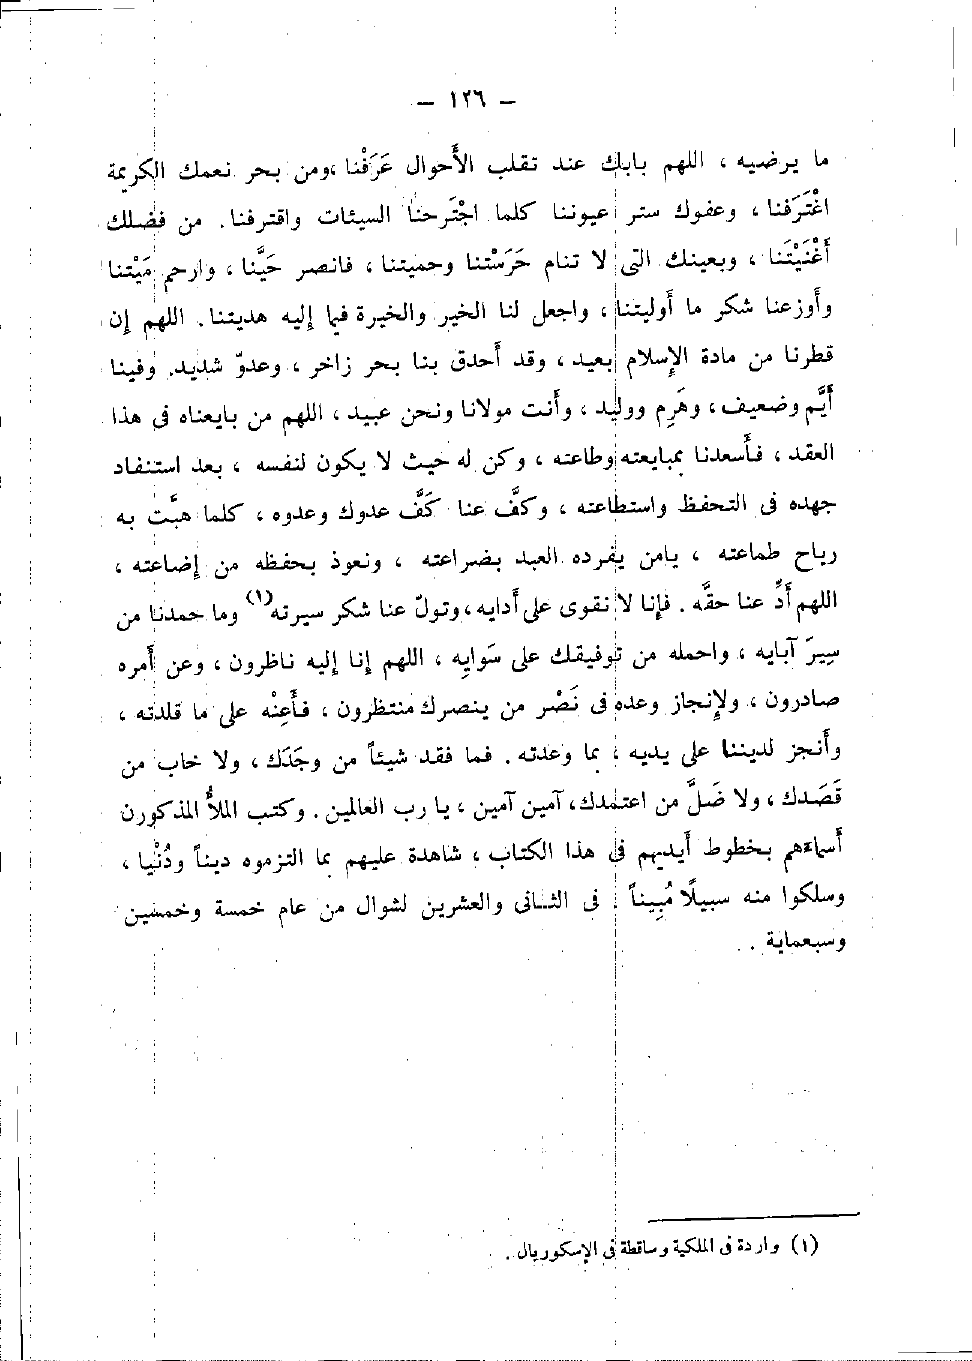 — ١٢٦ —
ما يرضيه ، اللهم بابك عند تقلب الأحوال عَرَفْنا ،ومن بحر نعمك الكريمة
اغْتَرَفنا ، وعفوك ستر عيوننا كلما اجْتَرحنا السيئات واقترفنا . من فضلك
أغْنَيْتَنا ، وبعينك التى لا تنام حَرَسْتنا وحميتنا ، فانصر حَيَّنا ، وارحم مَيْتنا
وأوزعنا شكر ما أوليتنا ، واجعل لنا الخير والخيرة فيما إليه هديتنا . اللهم إن
قطرنا من مادة الإسلام بعيد ، وقد أحدق بنا بحر زاخر ، وعدوّ شديد . وفينا
أيَّم وضعيف ، وهَرِم ووليد ، وأنت مولانا ونحن عبيد ، اللهم من بايعناه فى هذا
العقد ، فأسعدنا بمبايعته وطاعته ، وكن له حيث لا يكون لنفسه ، بعد استنفاد
جهده فى التحفظ واستطاعته ، وكفَّ عنا كَفَّ عدوك وعدوه ، كلما هبَّت به
رياح طماعته ، يامن يفرده العبد بضراعته ، ونعوذ بحفظه من إضاعته ،
اللهم أدِّ عنا حقَّه . فإنا لا نقوى على أدايه ، وتولّ عنا شكر سيرته (١) وما حمدنا من
سِيرَ آبايه ، واحمله من توفيقك على سَوايِه ، اللهم إنا إليه ناظرون ، وعن أمره
صادرون ، ولإنجاز وعده فى نَصْر من ينصرك منتظرون ، فأعِنْه على ما قلدته ،
وأنجز لديننا على يديه ، بما وعدته . فما فقد شيئاً من وجَدَك ، ولا خاب من
قَصَدك ، ولا ضَلَّ من اعتمدك ، آمين آمين ، يا رب العالمين . وكتب الملأُ المذكورن
أسماءهم بخطوط أيديهم فى هذا الكتاب ، شاهدة عليهم بما التزموه ديناً ودُنْيا ،
وسلكوا منه سبيلًا مُبِيناً . فى الثانى والعشرين لشوال من عام خمسة وخمسين
وسبعماية .
(١) واردة فى الملكية وساقطة فى الإسكوريال .